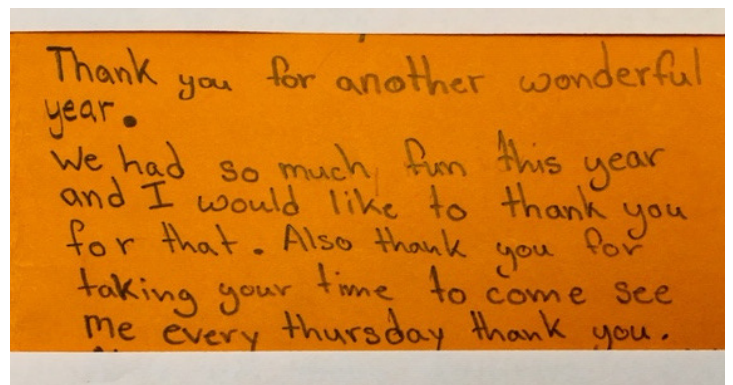 Thank you for another wonderful
year.
We had so much fun this year
and I would like to thank you
for that. Also thank you for
taking your time to come see
me every thursday thank you.